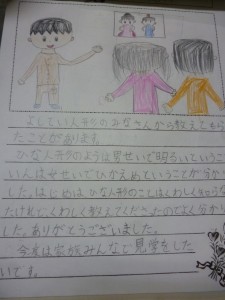 よしていん人形のみなさんから教えてもらっ
たことがあります。
ひな人形のようは男せいで明るいということ
いんは女せいでひかえめということが分かりま
した。はじめは、ひな人形のことはくわしく知らな
たけれど、くわしく教えてくださったのでよく分かりま
した。ありがとうございました。
今度は家族みんなで見学をした
いです。